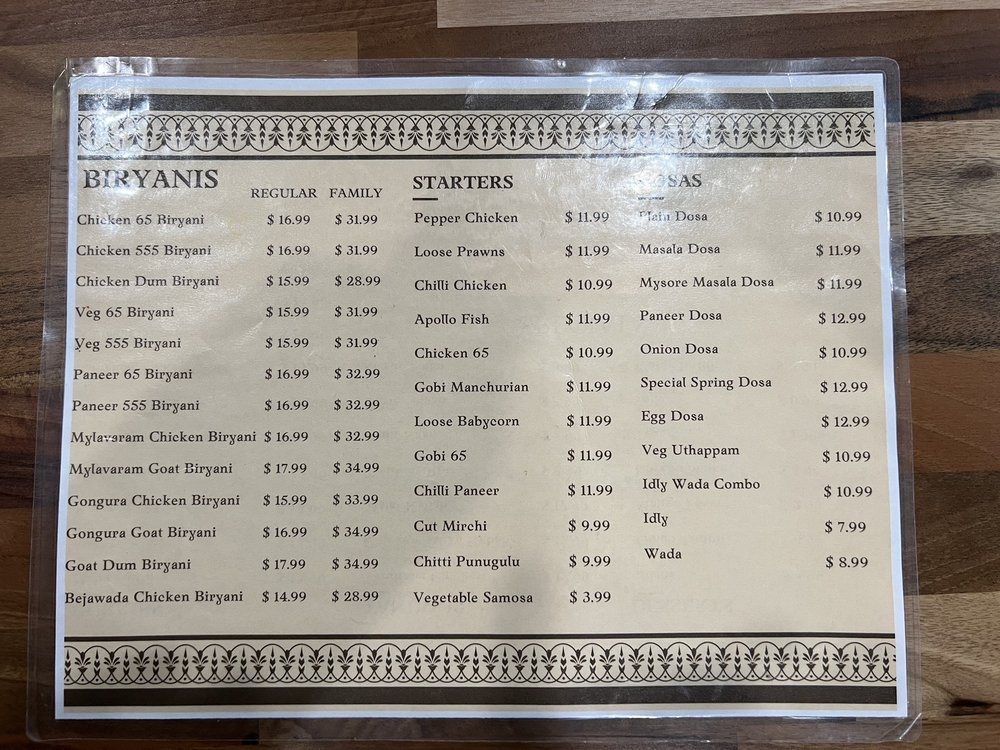 BIRYANIS
REGULAR FAMILY
Chicken 65 Biryani $ 16.99 $ 31.99
Chicken 555 Biryani $ 16.99 $ 31.99
Chicken Dum Biryani $ 15.99 $ 28.99
Veg 65 Biryani $ 15.99 $ 31.99
Veg 555 Biryani $ 15.99 $ 31.99
Paneer 65 Biryani $ 16.99 $ 32.99
Paneer 555 Biryani $ 16.99 $ 32.99
Mylavaram Chicken Biryani $ 16.99 $ 32.99
Mylavaram Goat Biryani $ 17.99 $ 34.99
Gongura Chicken Biryani $ 15.99 $ 33.99
Gongura Goat Biryani $ 16.99 $ 34.99
Goat Dum Biryani $ 17.99 $ 34.99
Bejawada Chicken Biryani $ 14.99 $ 28.99
STARTERS
Pepper Chicken $ 11.99
Loose Prawns $ 11.99
Chilli Chicken $ 10.99
Apollo Fish $ 11.99
Chicken 65 $ 10.99
Gobi Manchurian $ 11.99
Loose Babycorn $ 11.99
Gobi 65 $ 11.99
Chilli Paneer $ 11.99
Cut Mirchi $ 9.99
Chitti Punugulu $ 9.99
Vegetable Samosa $ 3.99
DOSAS
Plain Dosa $ 10.99
Masala Dosa $ 11.99
Mysore Masala Dosa $ 11.99
Paneer Dosa $ 12.99
Onion Dosa $ 10.99
Special Spring Dosa $ 12.99
Egg Dosa $ 12.99
Veg Uthappam $ 10.99
Idly Wada Combo $ 10.99
Idly $ 7.99
Wada $ 8.99